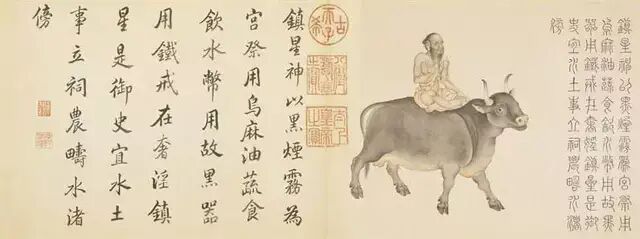 鎮星神以黑煙霧爲宮祭用
烏麻油蔬食飲水幣用故黑
器用鐵戒在奢淫鎮星是御
史宜水土事立祠農疇水渚
傍
古希天子
鎮星神以黑煙霧為
宮祭用烏麻油蔬食
飲水幣用故黑器
用鐵戒在奢淫鎮
星是御史宜水土
事立祠農疇水渚
傍